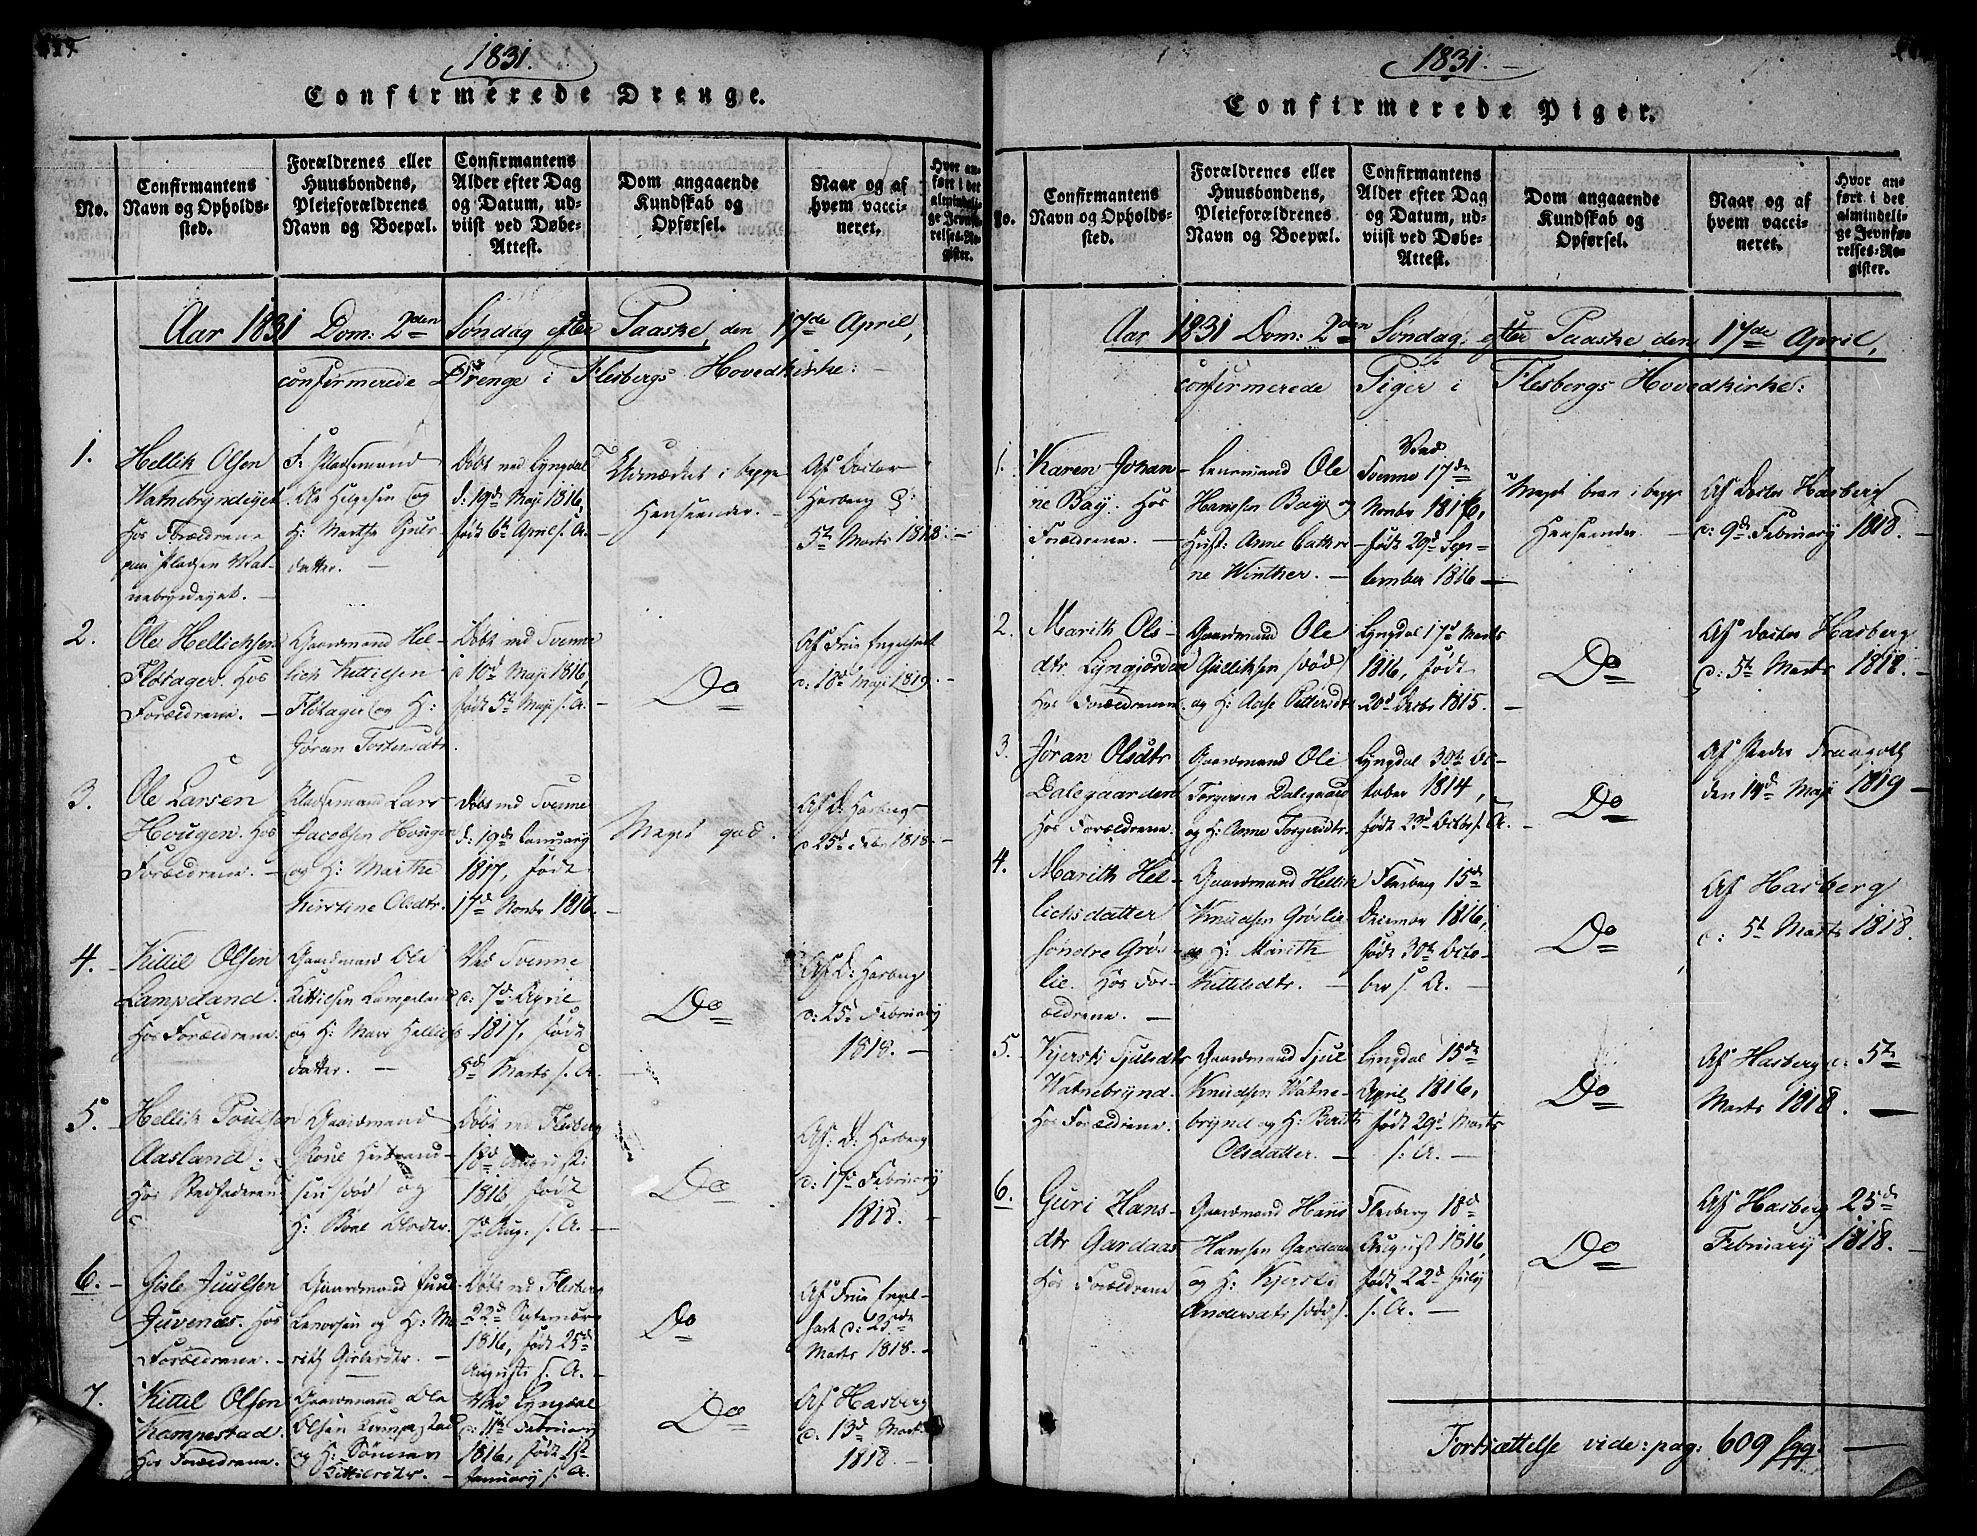 1831.
Confirmerede Drenge.
No.
Confirmantens
Navn og Opholds-
sted.
Forældrenes eller
Huusbondens,
Plejeforældrenes
Navn og Boepæl.
Confirmantens
Alder efter Dag
og Datum, ud-
viist ved Døbe-
Attest.
Dom angaaende
Kundskab og
Opførsel.
Naar og af
hvem vacci-
neret.
Hvor an-
ført i det
almindeli-
ge Jevnfø-
relses-Re-
gister.
Aar 1831 Dom: 2den Søndag efter Paaske, den 17de April,
confirmerede Drenge i Flesbergs Hovedkirke:
1.
Hellik Olsen
Hos Forældrene
F. Pladsemand
Ole Helgesen og
H: Marthe
datter.
Døbt ved Lyngdal
d: 19de Maji 1816,
født 6te April s. A.
Udmærket i begge
Henseender.
Af Doctor
Harberg d:
5te Marts 1818.
2.
Ole Hellichsen
Fløtager. Hos
Forældrene.
Gaardmand Hel-
lich Kittilsen
Fløtager og H:
Jøran Tostensdtr.
Døbt ved Svenne
d 10de Maji 1816,
født 5te Maji s. A.
Do
Af Frue Engelhart
d: 18de Maji 1819.
3.
Ole Larsen
Hougen. Hos
Forældrene.
Pladsemand Lars
Jacobsen Hougen
og H: Marthe
Kirstine Olsdtr.
Døbt ved Svenne
d: 19de Januarÿ
1817, født
17de Novbr 1816.
Meget god.
Af D: Harberg
d 25de Febr 1818.
4.
Kittil Olsen
Lampeland.
Hos Forældrene.
Gaardmand Ole
Kittilsen Lampeland
og H: Mare Hellichs
datter.
Ved Svenne
d: 7de April
1817, født
8de Marts s. A.
Do
Af D: Harberg
d: 25de Februarÿ
1818.
5.
Hellik Poulsen
Aasland.
Hos Stedfaderen
Gaardmand
Poul
sen (død) og
H:
Døbt ved Flesberg
18de Augusti
1816 født
7de Aug. s. A.
Do
Af: D: Harberg
d: 17de Februarÿ
1818.
6.
Gisle Juulsen
Juvenes. Hos
Forældrene.
Gaardmand Juul
og H: Ma-
rith Gislesdtr.
Døbt ved Flesberg
22de Septembr
1816, født 25de
Augusti s. A.
Do
Af Frue Engel-
hart d: 25de
Marts 1818.
7.
Kittil Olsen
Kampestad
Hos Forældrene.
Gaardmand Ole
Olsen Kampestad
og H: Sønnev
Kittilsdtr.
Ved Lyngdal
d: 11te Februarÿ
1816, født 1st
Januarÿ s. A.
Do
Af Harberg
d. 13de Marts
1818.
1831.
Confirmerede Piger.
No.
Confirmantens
Navn og Opholds-
sted.
Forældrenes eller
Huusbondens,
Plejeforældrenes
Navn og Boepæl.
Confirmantens
Alder efter Dag
og Datum, ud-
viist ved Døbe-
Attest.
Dom angaaende
Kundskab og
Opførsel.
Naar og af
hvem vacci-
neret.
Hvor an-
ført i det
almindeli-
ge Jevnfø-
relses-Re-
gister.
Aar 1831 Dom: 2den Søndag efter Paaske den 17de April,
confirmerede Piger i Flesbergs Hovedkirke:
1.
Karen Johan-
ne Baÿ. Hos
Forældrene.
Lensmand Ole
Hanssen Baÿ og
Hust: Anne Cathri-
ne Winther.
Ved
Svenne 17de
Novbr 1816,
født 29de Sep-
tember 1816
Meget bra i begge
Henseender.
Af Doctor Harberg
d: 9de Februarÿ 1818.
2.
Marith Ols-
dtr Lyngjordet
Hos Forældrene.
Gaardmand Ole
Gulliksen (død)
og H: Aase Pettersdtr
Lyngdal 17de Marts
1816, født
20de Decbr 1815.
Do
Af Doctor Harberg
d: 5te Marts 1818.
3.
Jøran Olsdtr
Dalegaarden
Hos Forældrene.
Gaardmand Ole
Torgersen Dalegaard
og H: Anne Torgersdtr.
Lyngdal 30te Oc-
tober 1814,
født 23de Octbr s. A.
Do
den 14de Maji 1819
4.
Marith Hel-
lichsdatter
Søndre Grøs-
lie. Hos For-
ældrene.
Gaardmand Hellik
Knudsen Grøslie
og H: Marith
Kittilsdtr.
Flesberg 15de
December 1816,
født 30te Octo-
ber s. A.
Do
Af Harberg
d: 5te Marts 1818.
5.
Kjersti Sjulsdtr
Watnebrÿnd.
Hos Forældrene.
Gaardmand Sjul
Knudsen Watne-
brÿnd og H: Berith
Olsdatter.
Lyngdal 15de
April 1816,
født 29de Marts
s. A.
Do
Af Harberg d: 5te
Marts 1818.
6.
Guri Hans-
dtr Gardaas
Hos Forældrene
Gaardmand Hans
Hanssen Gardaas
og H: Kjersti
Andersdtr (død).
Flesberg 18de
August 1816,
født 22de Julÿ
s. A.
Do
Af Harberg 25de
Februarÿ 1818.
Fortsættelse vide: pag: 609 fqq.